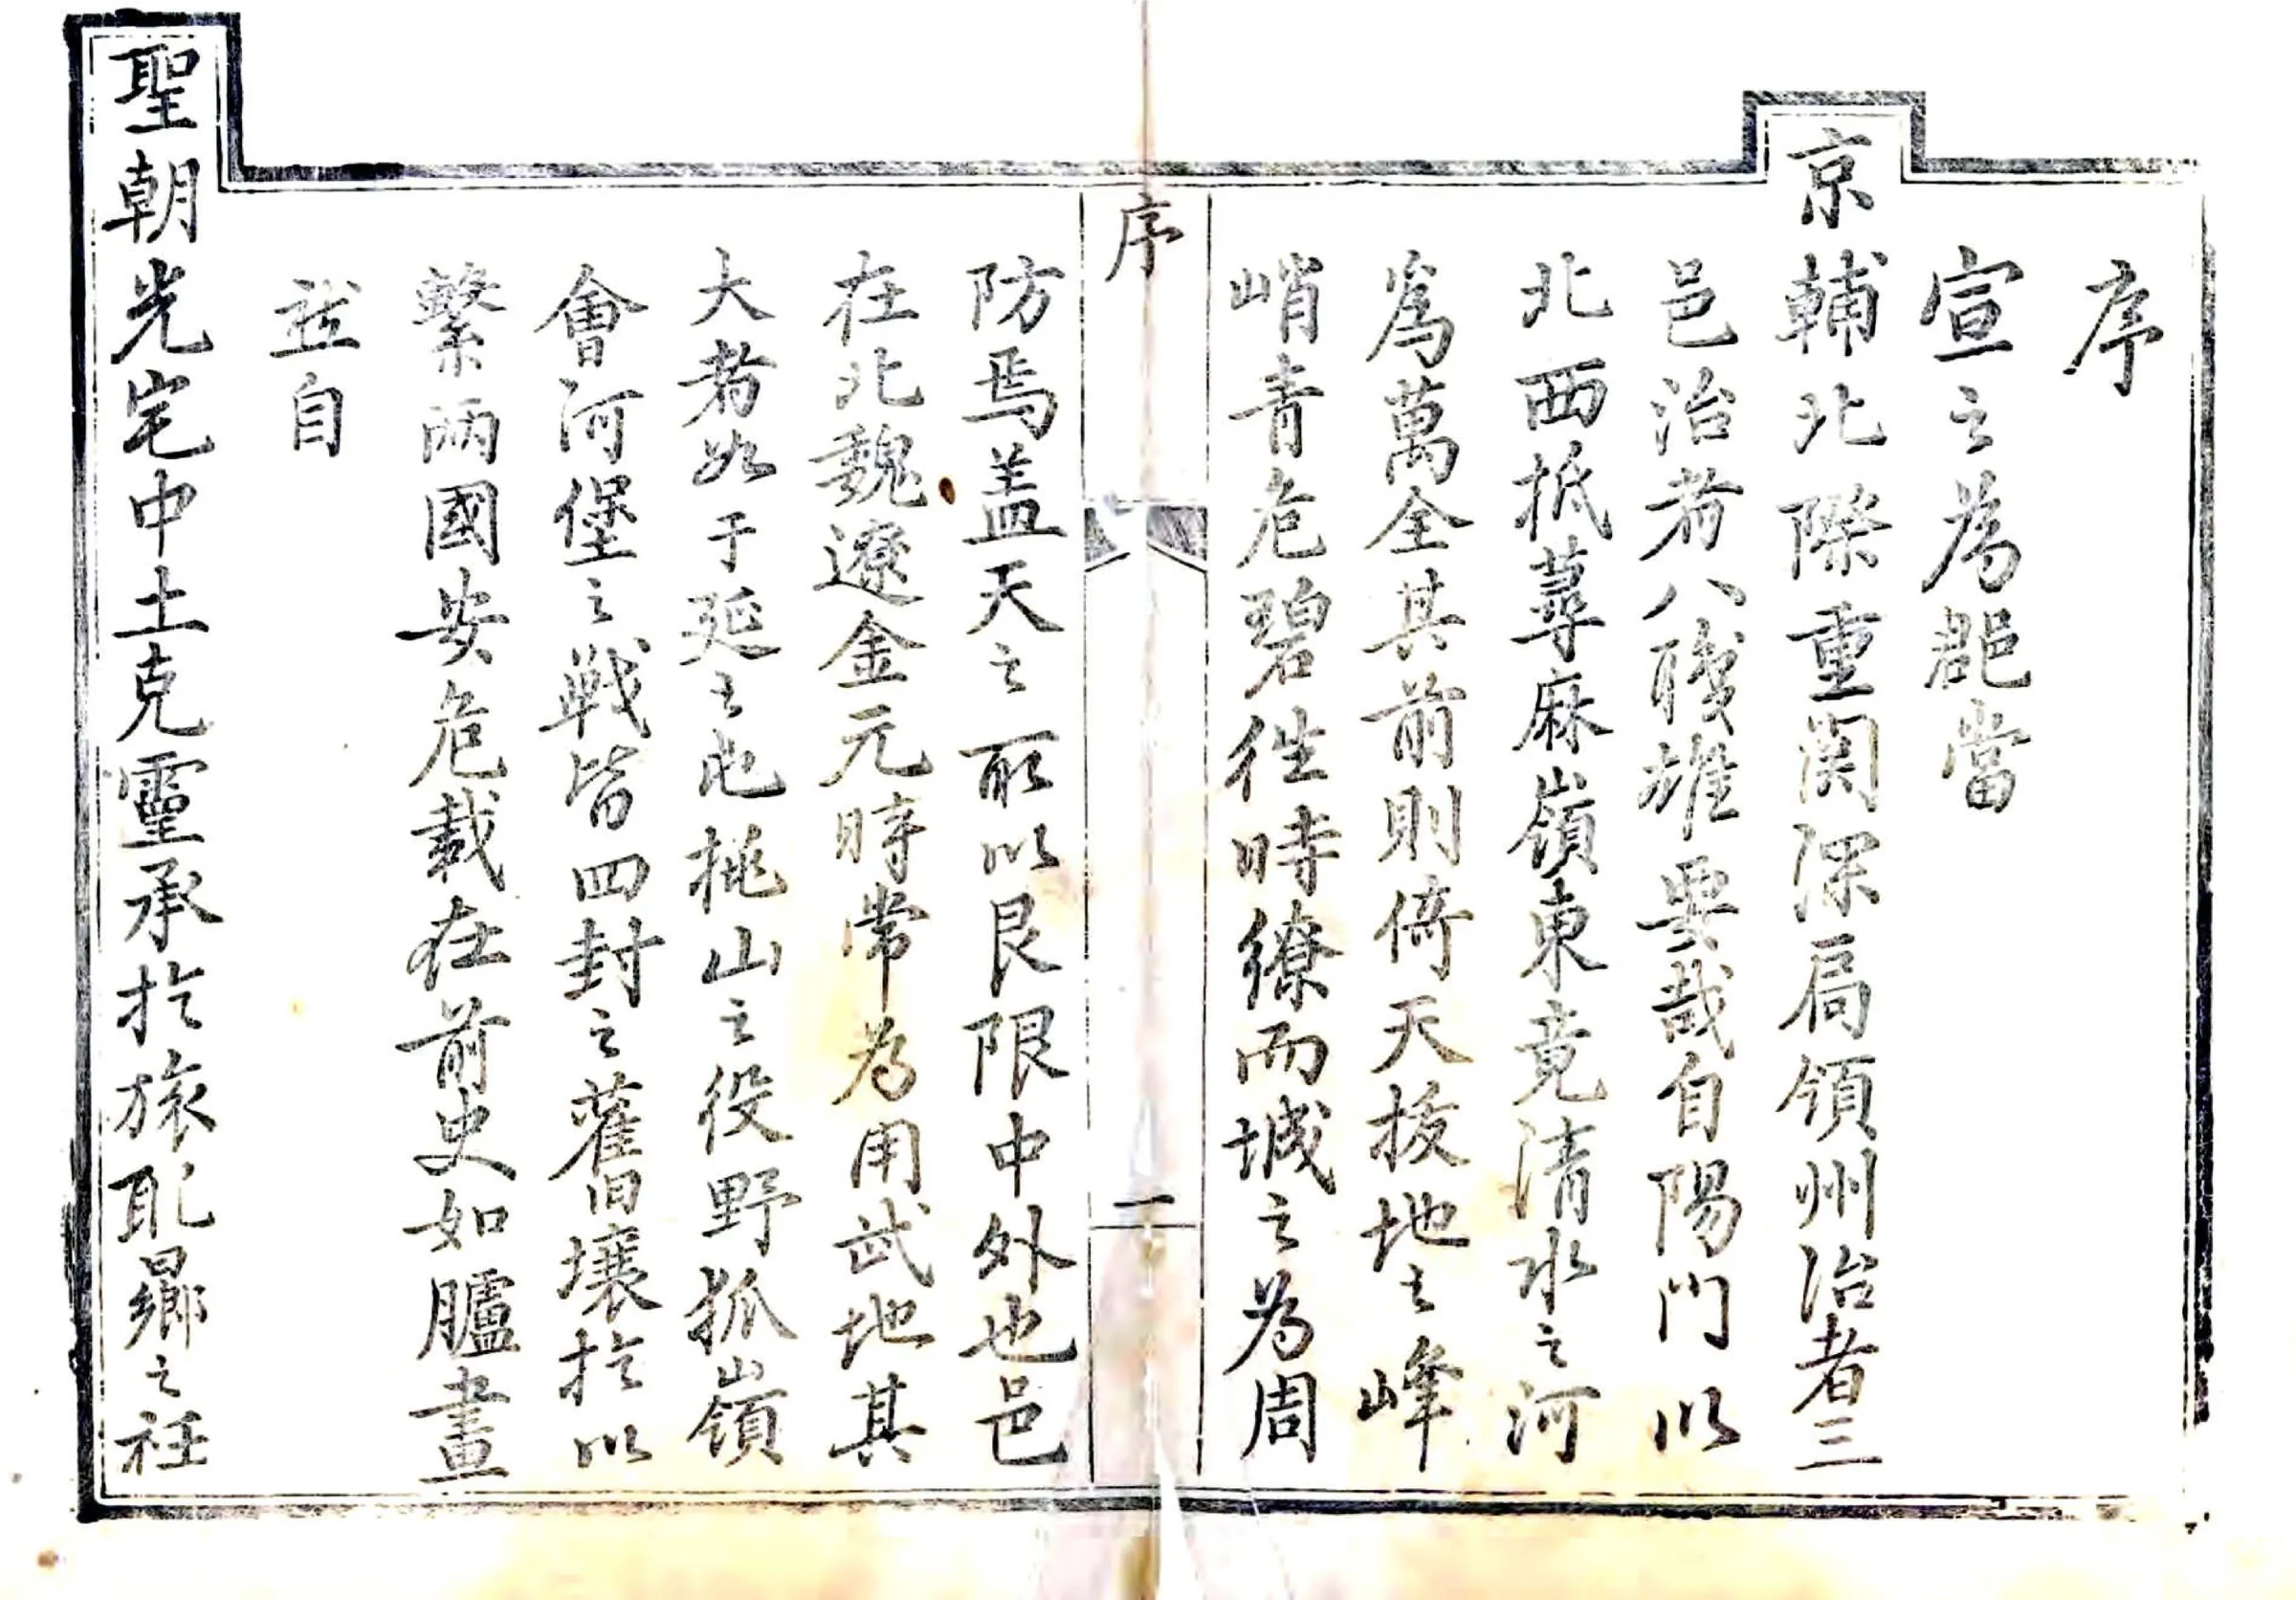 序
宣之為郡當
京輔北際重関深扃領州治者三
邑治者八䏻雄要哉自陽門以
北西抵蕁麻嶺東竟清水之河
爲萬全其前則倚天拔地之峰
峭青危碧徃時繚而城之為周
序
一
防焉盖天之所以艮限中外也邑
在北魏遼金元時常為用武地其
大者如于延之屯挑山之役野狐嶺
會河堡之戰皆四封之舊壤扵以
繫兩國安危載在前史如臚畫
茲自
聖朝光宅中土克靈承扵旅配曏之衽